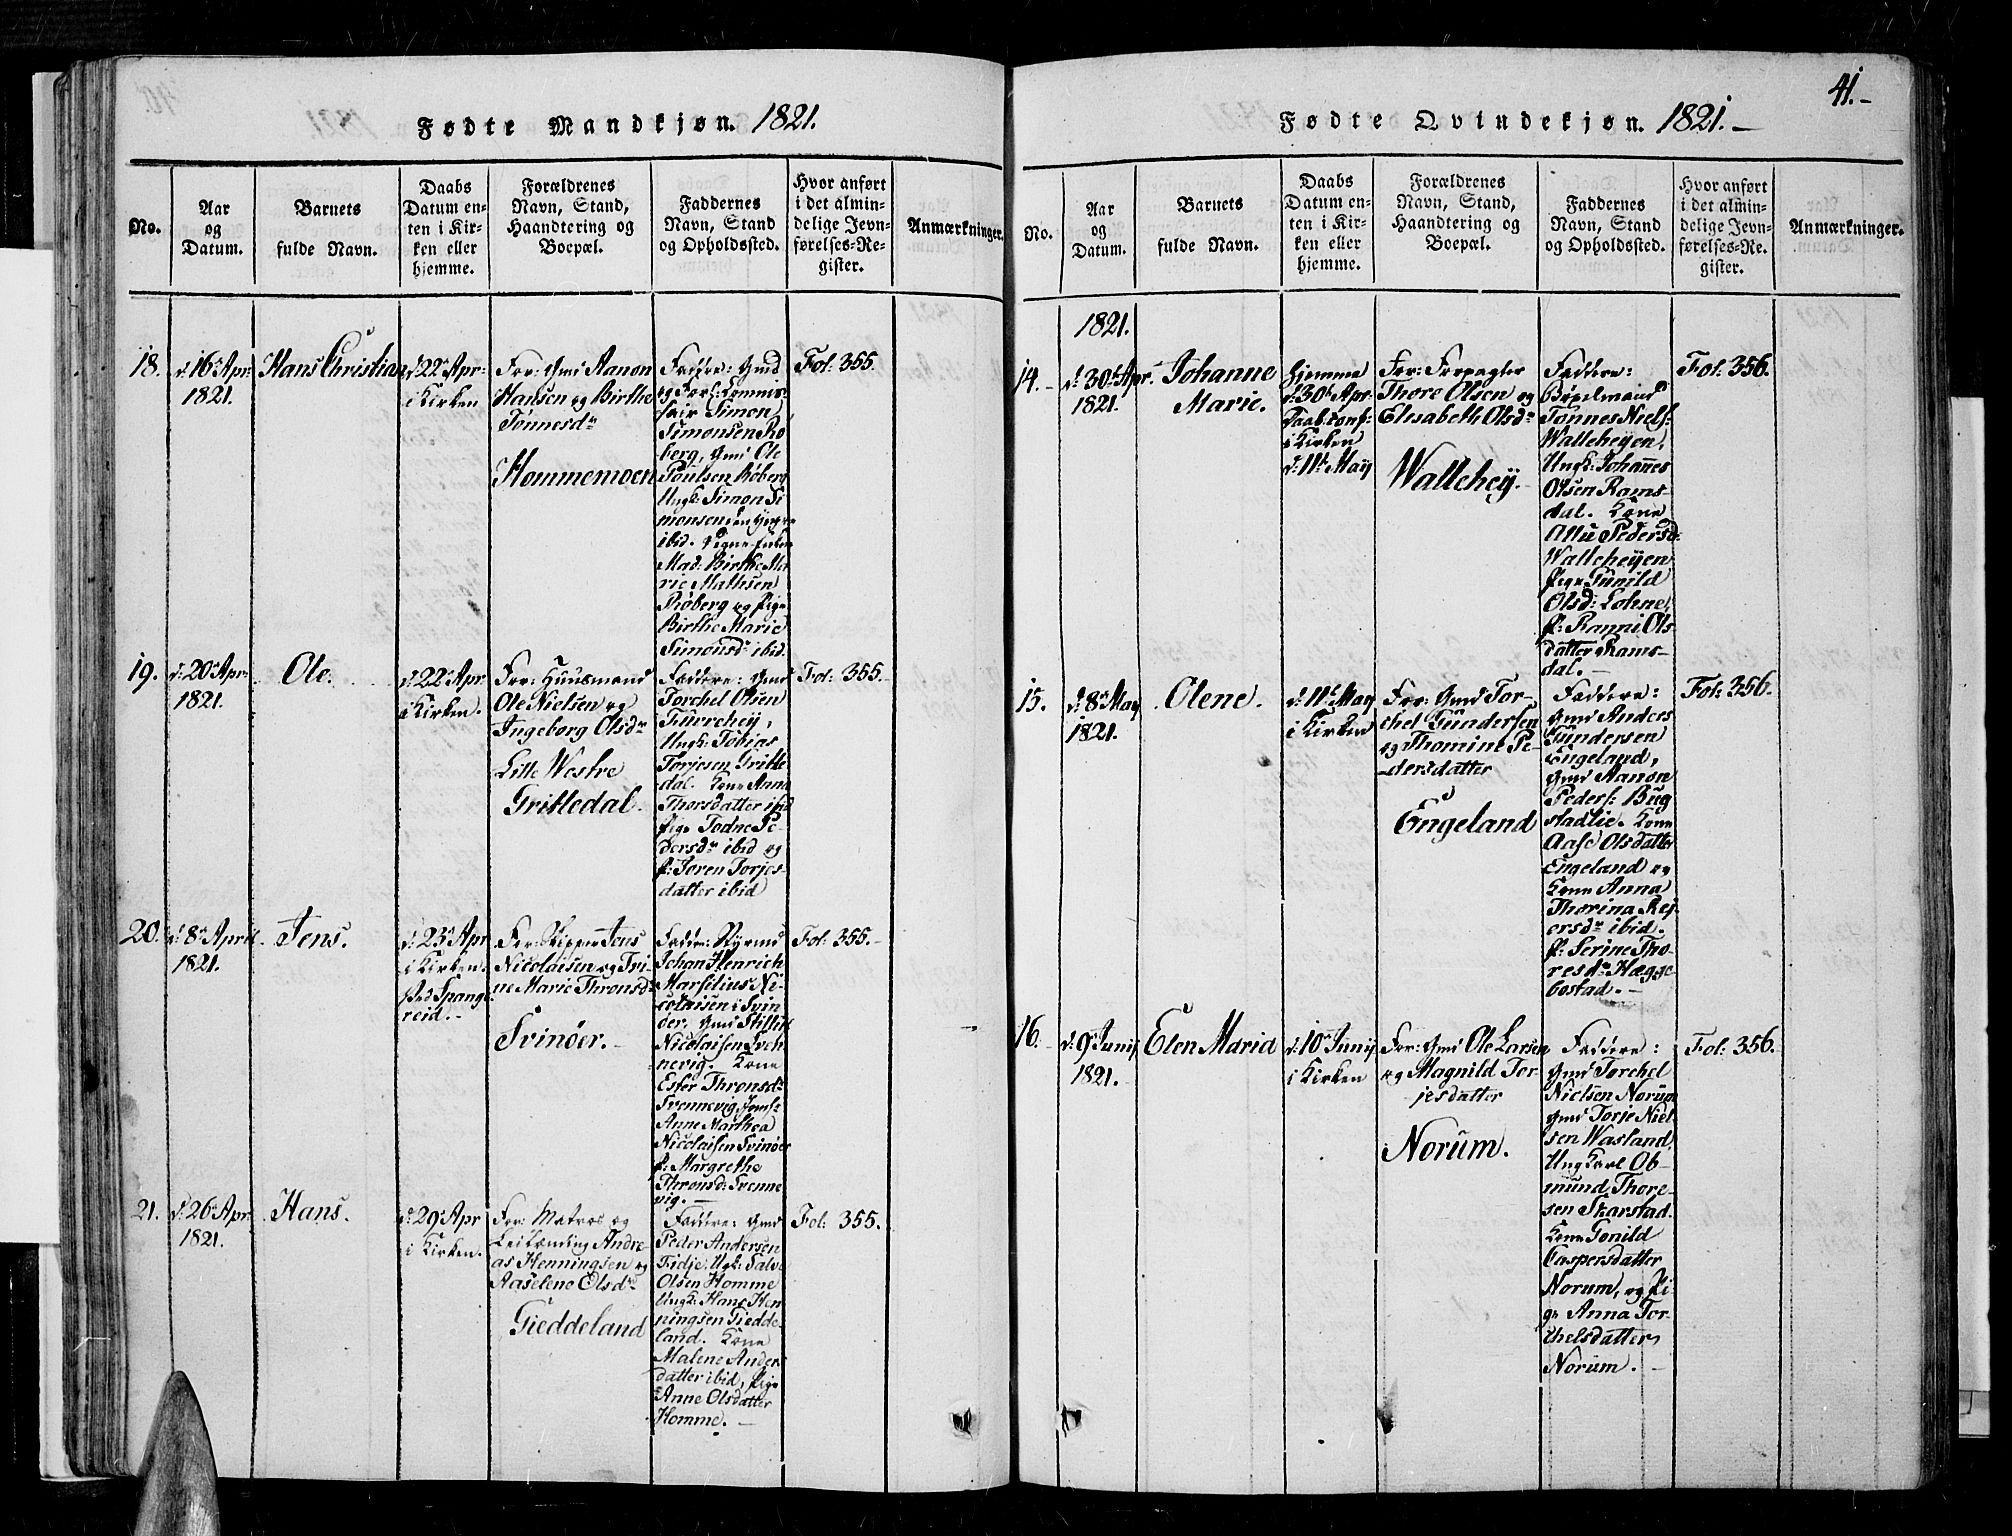 Fødte Mandkjøn. 1821.
No.
Aar
og
Datum.
Barnets
fulde Navn.
Daabs
Datum en-
ten i Kir-
ken eller
hjemme.
Forældrenes
Navn, Stand,
Haandtering og
Boepæl.
Faddernes
Navn, Stand
og Opholdssted.
Hvor anført
i det almin-
delige Jevn-
førelses-Re-
gister.
Anmærkninger.
18.
d: 16de Apr:
1821.
Hans Christian
d: 22de Apr:
i Kirken
For: Gmd Aanon
Hansen og Birthe
Tønnesdr
Hommemoen
Faddre: Gmd
og Forl: Commis-
sair Simon
Simonsen Rø
berg, Gmd Ole
Poulsen Røberg
Ungk: Simon Si
monsen den Yngre
ibid.
Mad: Birthe Ma
rie Mathsen
Røberg og Pige
Birthe Marie
Simonsdr ibid.
Fol: 355.
19.
d: 20de Apr:
1821.
Ole.
d: 22de Apr
i Kirken.
For: Huusmand
Ole Nielsen og
Ingeborg Olsdr
Lille Westre
Grittedal.
Faddere: Gmd
Torchel Olsen
Furrehey,
Ungk: Tobias
Torjesen Gritte
dal. Kone Anna
Thorsdatter ibid
Pige Todne Pe-
dersdr ibid og
P: Joren Torjes-
datter ibid
Fol: 355.
20.
d: 8de April
1821.
Jens.
d: 23de Apr
i Kirken.
Ved Spange
reid.
For: Skipper Jens
Nicolaisen og Tri-
ne Marie Thronsdr
Svinøer.
Faddre: Styrmd
Johan Henrich
Marselius Ni-
colaisen i Svin
øer. Gmd
Nicolaisen Sven
nevig. Kone
Ester Thronsdr
Svennevig, Jomf:
Anne Marthea
Nicolaisen Svinøer
P: Margrethe
Thronsd: Svenne
vig.
Fol: 355.
21.
d: 26de Apr:
1821.
Hans.
d: 29de Apr
i Kirken.
For: Matros og
Leilænding Andre
as Henningsen og
Aaselene Olsdr
Gieddeland
Faddere: Gmd
Peder Andersen
Fidje, Ugk: Salve
Olsen Homme
Ungk: Hans Hen
ningsen Giedde
land. Kone
Malene Anders
datter ibid, Pige
Anne Olsdatter
Homme.
Fol: 355.
41.
Fødte Qvindekjøn. 1821.
No.
Aar
og
Datum.
Barnets
fulde Navn.
Daabs
Datum en-
ten i Kir-
ken eller
hjemme.
Forældrenes
Navn, Stand,
Haandtering og
Boepæl.
Faddernes
Navn, Stand
og Opholdssted.
Hvor anført
i det almin-
delige Jevn-
førelses-Re-
gister.
Anmærkninger.
1821.
14.
d: 30te Apr.
1821.
Johanne
Marie.
Hjemme
d: 30te Apr
Daab: conf:
i Kirken
d: 11te May
For: Forpagter
Thore Olsen og
Elisabeth Olsdr
Wallehey.
Faddere:
Bøxelmand
Tønnes Niels:
Walleheyen,
Ungk: Johannes
Olsen Rams-
dal. Kone
Pedersd:
Walleheyen
Pige Gunild
Olsd: Lohne,
P: Ranni Ols
datter Rams-
dal.
Fol: 356.
15.
d: 8de May
1821.
Olene.
d: 11te May
i Kirken
For: Gmd Tor-
chel Gundersen
og Thomine Pe-
dersdatter
Engeland
Faddere:
Gmd Anders
Gundersen
Engeland,
Gmd Aanon
Peders: Bug
stadlie. Kone
Aase Olsdatter
Engeland og
Kone Anna
Thorina Rej
ersdr ibid.
P: Serine Tho-
resdr Hægge-
bostad.
Fol: 356.
16.
d: 9de Junij
1821.
Elen Maria
d: 10de Junij
i Kirken
For: Gmd Ole Larsen
og Magnild Tor-
jesdatter
Norum.
Faddere:
Gmd Torchel
Nielsen Norum
Gmd Torje Niel
sen Wasland,
Ungkarl Ob-
mund Thore-
sen Skarstad.
Kone Gonild
Caspersdatter
Norum, og Pi
ge Anna Tor-
chelsdatter
Norum.
Fol: 356.